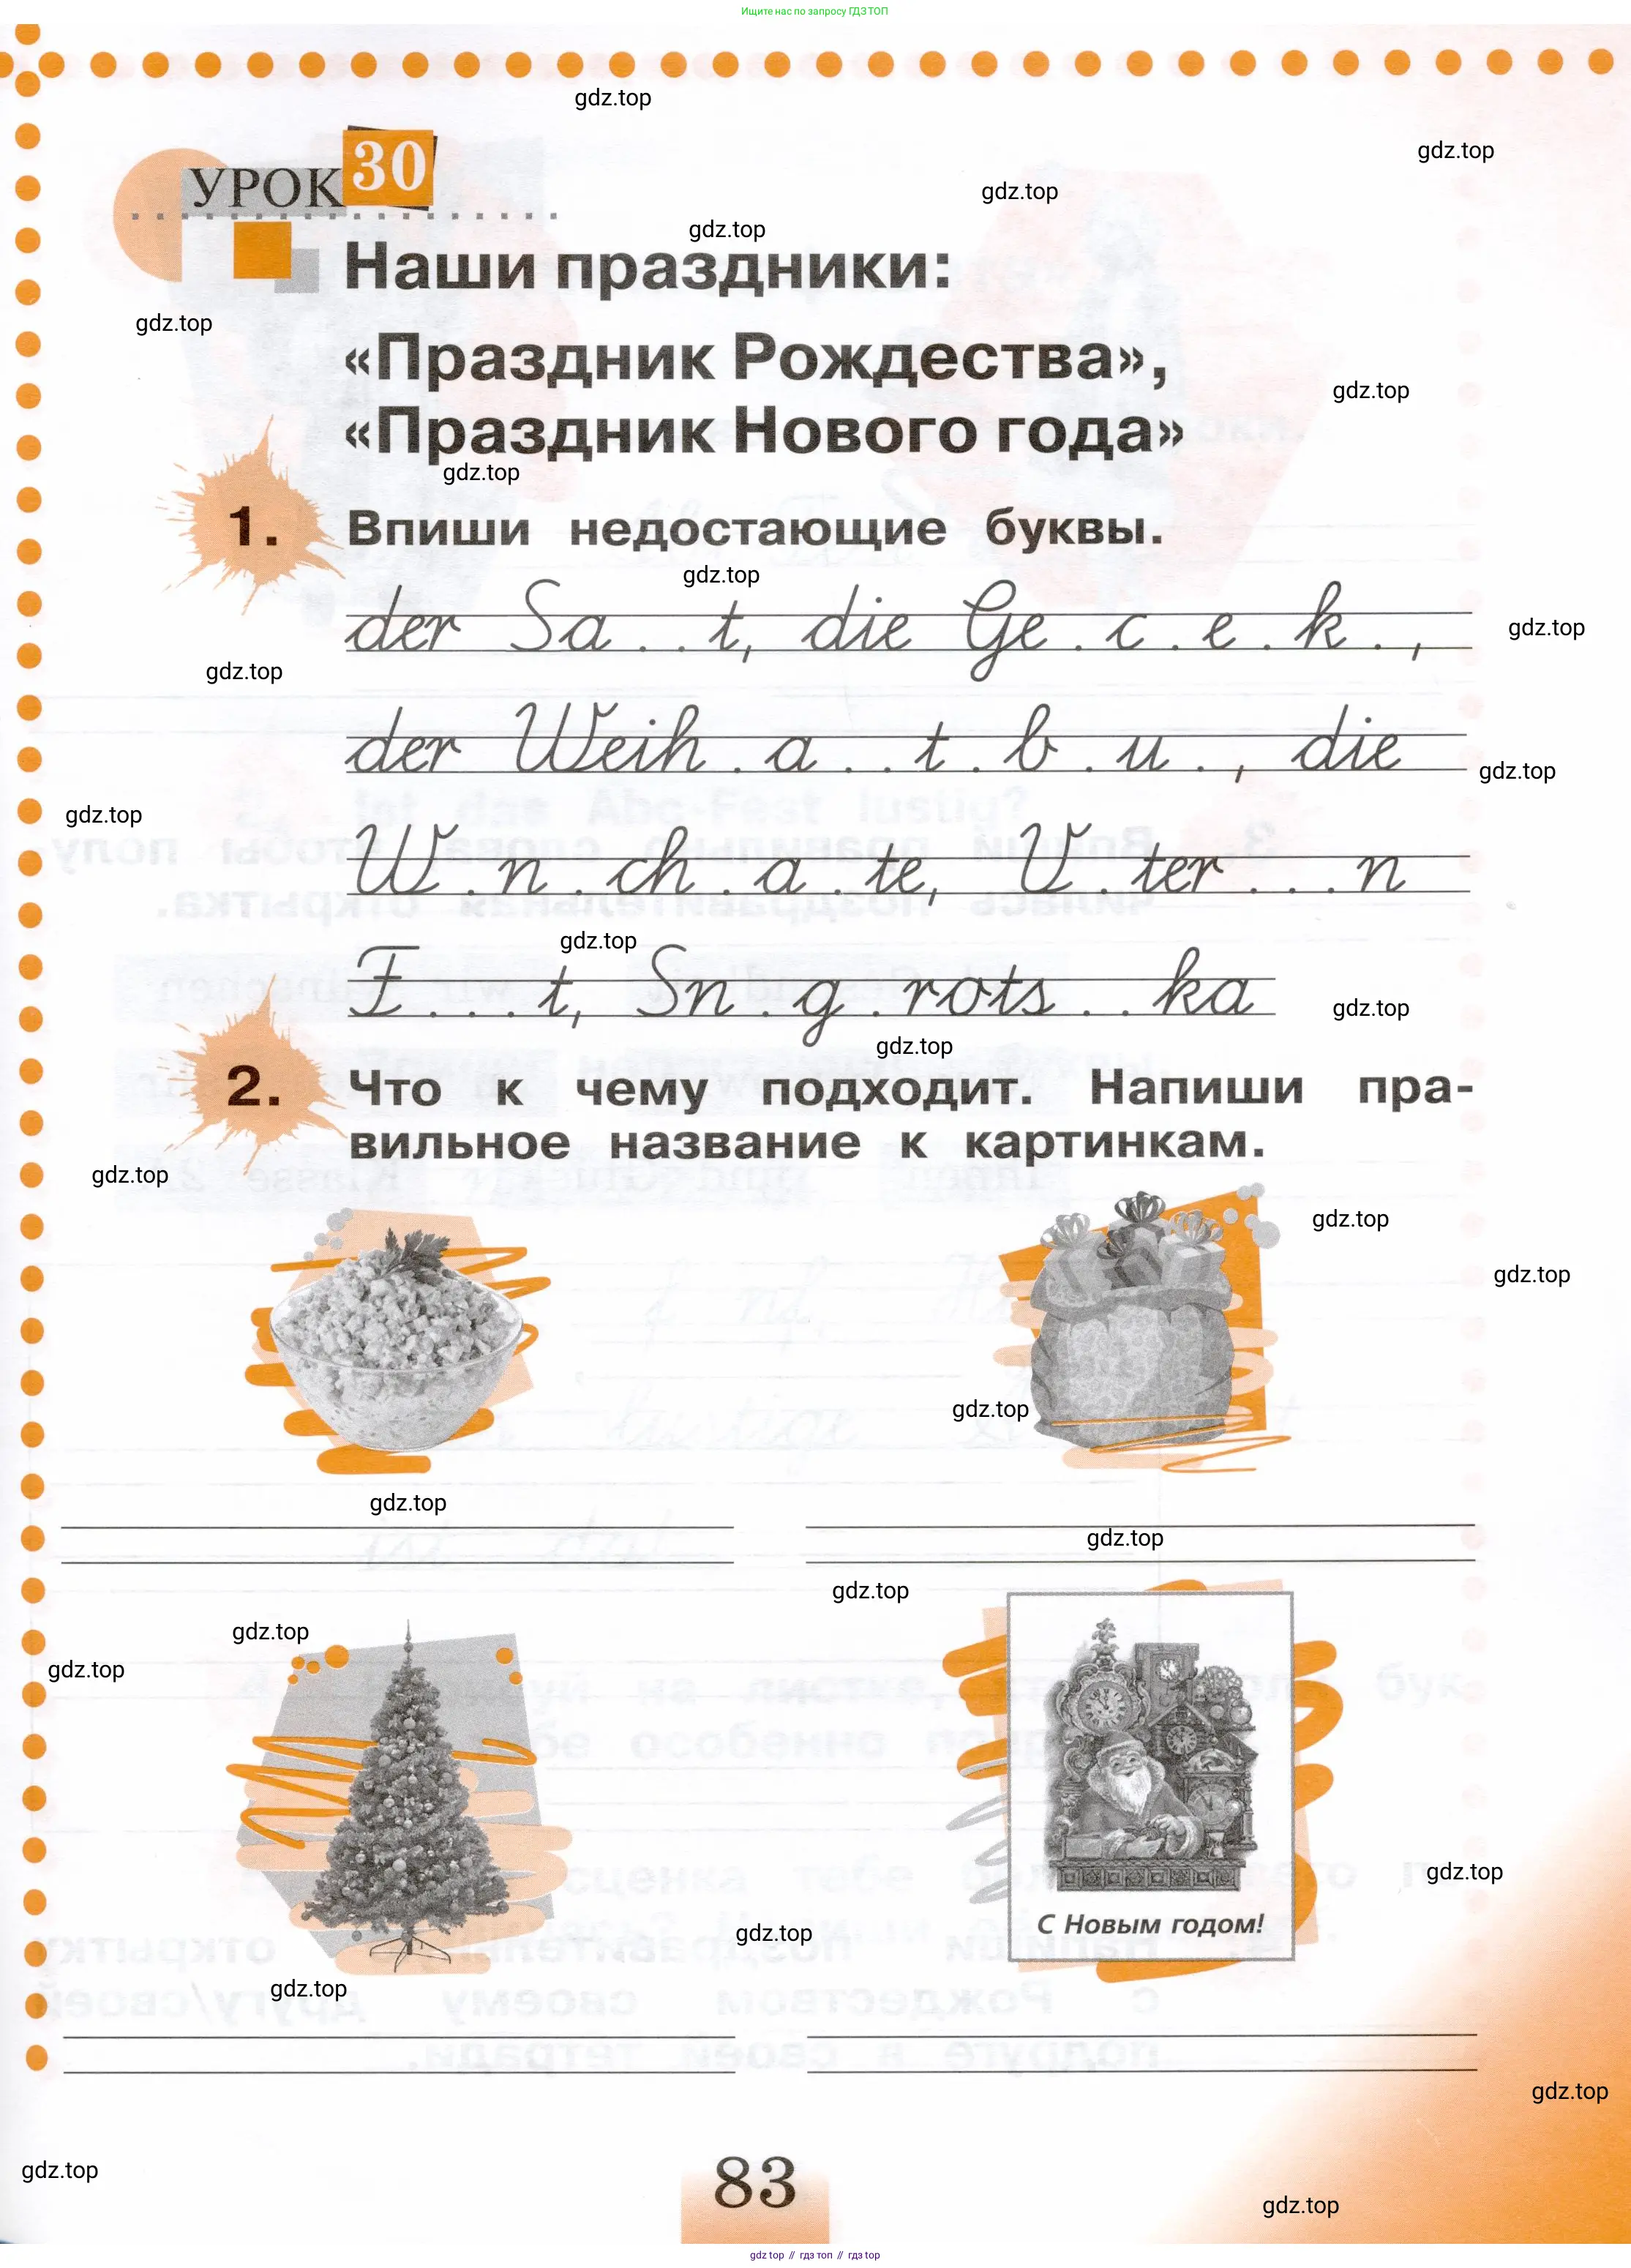 Ищите нас по запросу ГДЗ ТОП
gdz.top
gdz.top
УРОК 30
gdz.top
gdz.top
Наши праздники:
gdz.top
«Праздник Рождества»,
gdz.top
«Праздник Нового года»
gdz.top
1. Впиши недостающие буквы.
gdz.top
der Sa . . t, die Ge . c . e . k . ,
gdz.top
gdz.top
der Weih . a . . t . b . u . , die
gdz.top
gdz.top
W . n . ch . a . te, V . ter . . . n
gdz.top
F . . . t, Sn . g . rots . . ka
gdz.top
gdz.top
2. Что к чему подходит. Напиши пра-
вильное название к картинкам.
gdz.top
gdz.top
gdz.top
gdz.top
gdz.top
gdz.top
gdz.top
gdz.top
gdz.top
gdz.top
С Новым годом!
gdz.top
gdz.top
gdz.top
83
gdz.top
gdz.top
gdz top // гдз топ // гдз top